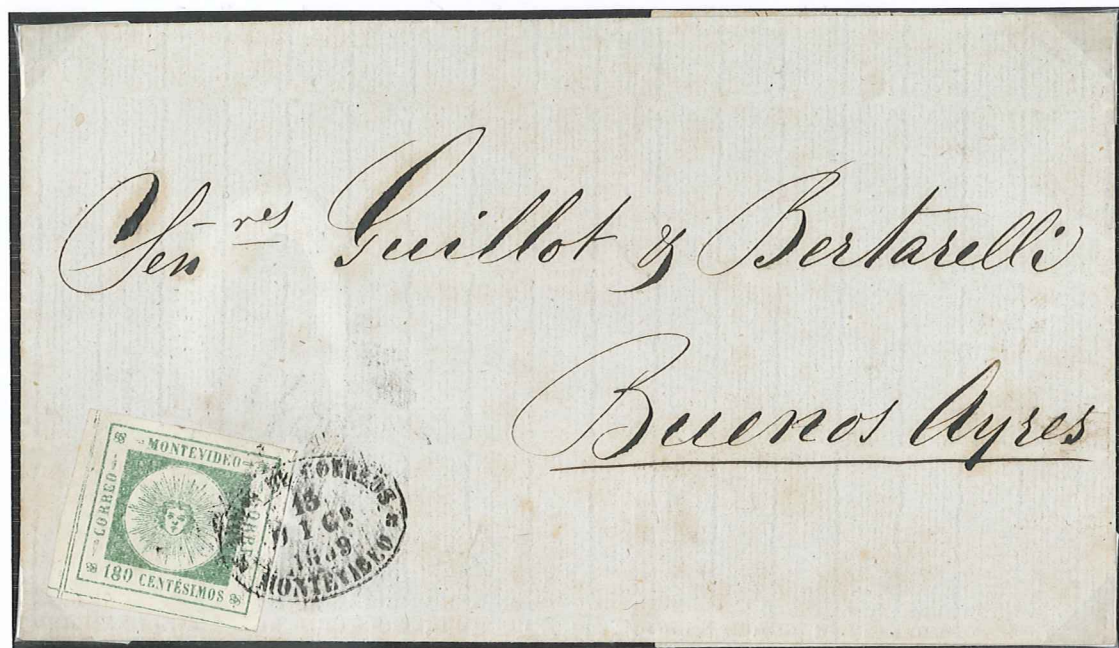 Señ res Guillot & Bertarelli
Buenos Ayres
MONTEVIDEO
CORREO
180 CENTÉSIMOS
CORREOS
13
DIC.
1859
MONTEVIDEO